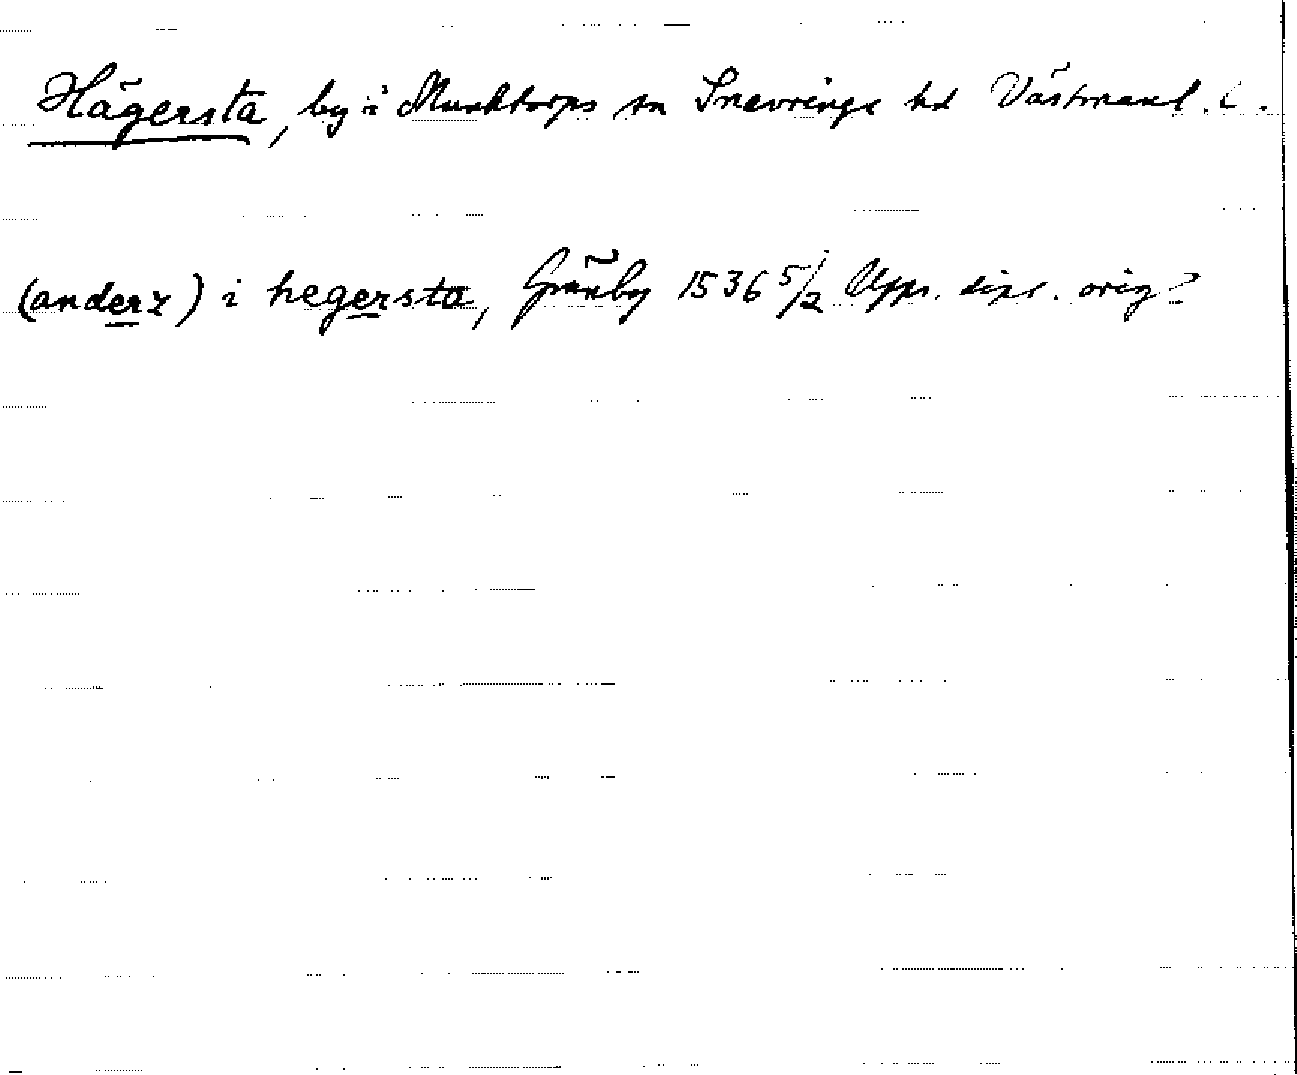 Hägersta, by i Munktorps sn Snevringe hd Västmanl. l.
(anderz) i hegersta, Gränby 1536 5/2 Upps. dipl. orig?